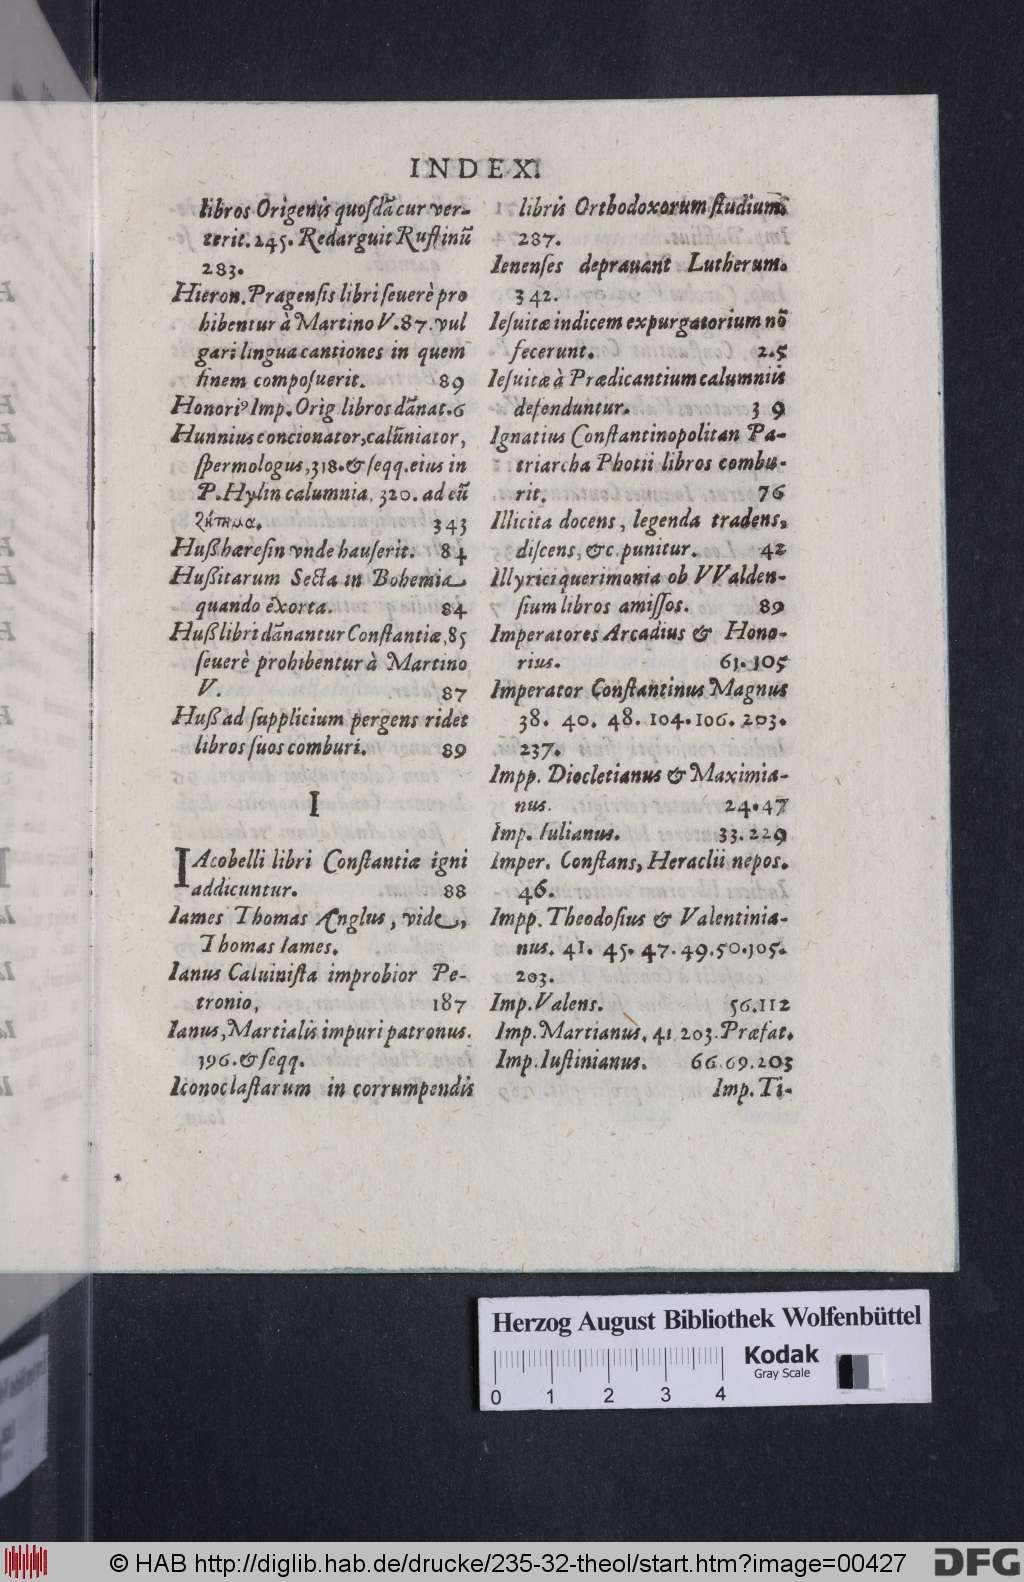 INDEX.
libros Origenis quosdã cur ver-
terit. 245. Redarguit Ruffinũ
283.
Hieron. Pragensis libri seuerè pro
hibentur à Martino V. 87. vul
gari lingua cantiones in quem
finem composuerit. 89
Honoriꝰ Imp. Orig libros dãnat. 6
Hunnius concionator, calũniator,
spermologus, 318. & seqq. eius in
P. Hylin calumnia, 320. ad eũ
ζήτημα. 343
Huß hæresin vnde hauserit. 84
Hußitarum Secta in Bohemia
quando exorta. 84
Huß libri dãnantur Constantiæ, 85
seuerè prohibentur à Martino
V. 87
Huß ad supplicium pergens ridet
libros suos comburi. 89
I
IAcobelli libri Constantiæ igni
addicuntur. 88
Iames Thomas Anglus, vide,
Thomas Iames.
Ianus Caluinista improbior Pe-
tronio, 187
Ianus, Martialis impuri patronus.
196. & seqq.
Iconoclastarum in corrumpendis
libris Orthodoxorum studium.
287.
Ienenses deprauant Lutherum.
342.
Iesuitæ indicem expurgatorium nõ
fecerunt. 25
Iesuitæ à Prædicantium calumniis
defenduntur. 39
Ignatius Constantinopolitan Pa-
triarcha Photii libros combu-
rit. 76
Illicita docens, legenda tradens,
discens, &c. punitur. 42
Illyrici querimonia ob VValden-
sium libros amissos. 89
Imperatores Arcadius & Hono-
rius. 61. 105
Imperator Constantinus Magnus
38. 40. 48. 104. 106. 203.
237.
Impp. Diocletianus & Maximia-
nus. 24. 47
Imp. Iulianus. 33. 229
Imper. Constans, Heraclii nepos.
46.
Impp. Theodosius & Valentinia-
nus. 41. 45. 47. 49. 50. 105.
203.
Imp. Valens. 56. 112
Imp. Martianus. 41 203. Præfat.
Imp. Iustinianus. 66. 69. 203
Imp. Ti-
Herzog August Bibliothek Wolfenbüttel
Kodak
Gray Scale
0 1 2 3 4
© HAB http://diglib.hab.de/drucke/235-32-theol/start.htm?image=00427
DFG